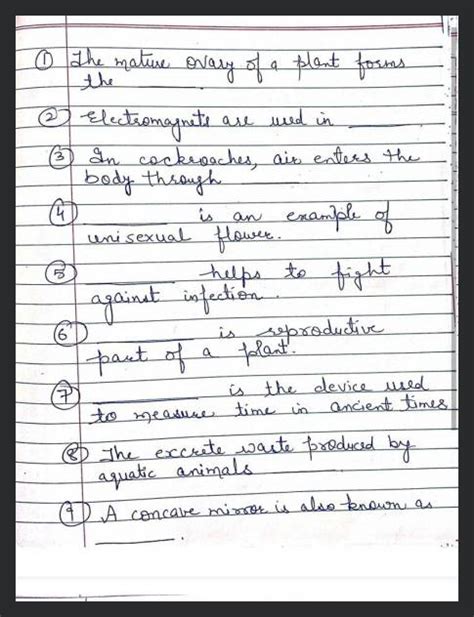 ① The mature ovary of a plant forms
the ________.
② Electromagnets are used in ________
③ In cockroaches, air enters the
body through ________
④ ________ is an example of
unisexual flower.
⑤ ________ helps to fight
against infection.
⑥ ________ is reproductive
part of a plant.
⑦ ________ is the device used
to measure time in ancient times
⑧ The excrete waste produced by
aquatic animals ________
⑨ A concave mirror is also known as
________.